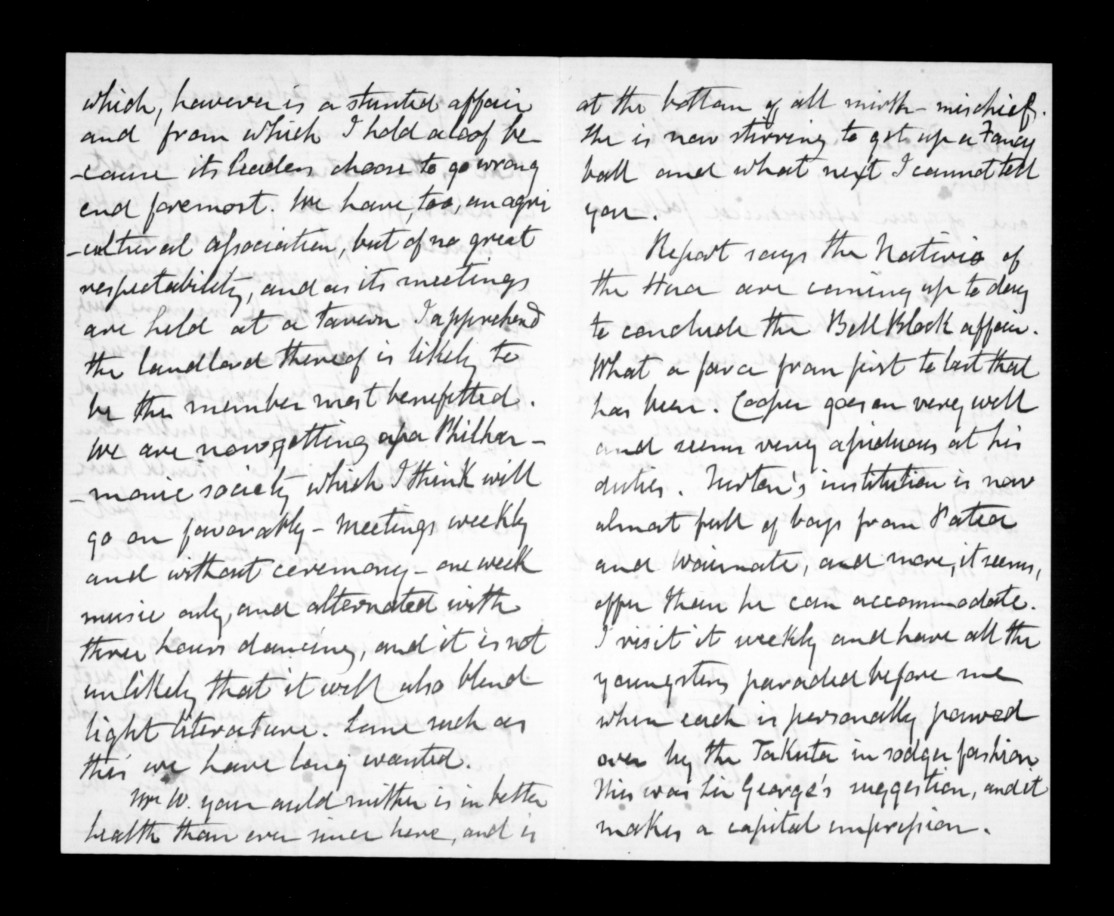 which, however is a stunted affair
and from which I hold aloof be-
-cause its leaders choose to go wrong
end foremost. We have, too, an agri
-cultural association, but of no great
respectability, and as its meetings
are held at a tavern I apprehend
the landlord thereof is likely to
be the member most benefitted.
We are now getting up a Philhar-
-monic society which I think will
go on favorably - meetings weekly
and without ceremony - one week
music only, and alternated with
three hours dancing, and it is not
unlikely that it will also blend
light literature. Some such as
this we have long wanted.
Mr W. your auld mither is in better
health than ever since here, and is
at the bottom of all mirth - mischief.
She is now stirring to get up a Fancy
ball and what next I cannot tell
you.
Report says the Natives of
the Hua are coming up to day
to conclude the Bell Block affair.
What a farce from first to last that
has been. Cooper goes on very well
and seems very assiduous at his
duties. Turton's institution is now
almost full of boys from Patea
and Waimate, and more, it seems,
offer than he can accommodate.
I visit it weekly and have all the
youngsters paraded before me
when each is personally pawed
over by the Takuta in sodger fashion
This was Sir George's suggestion, and it
makes a capital impression.